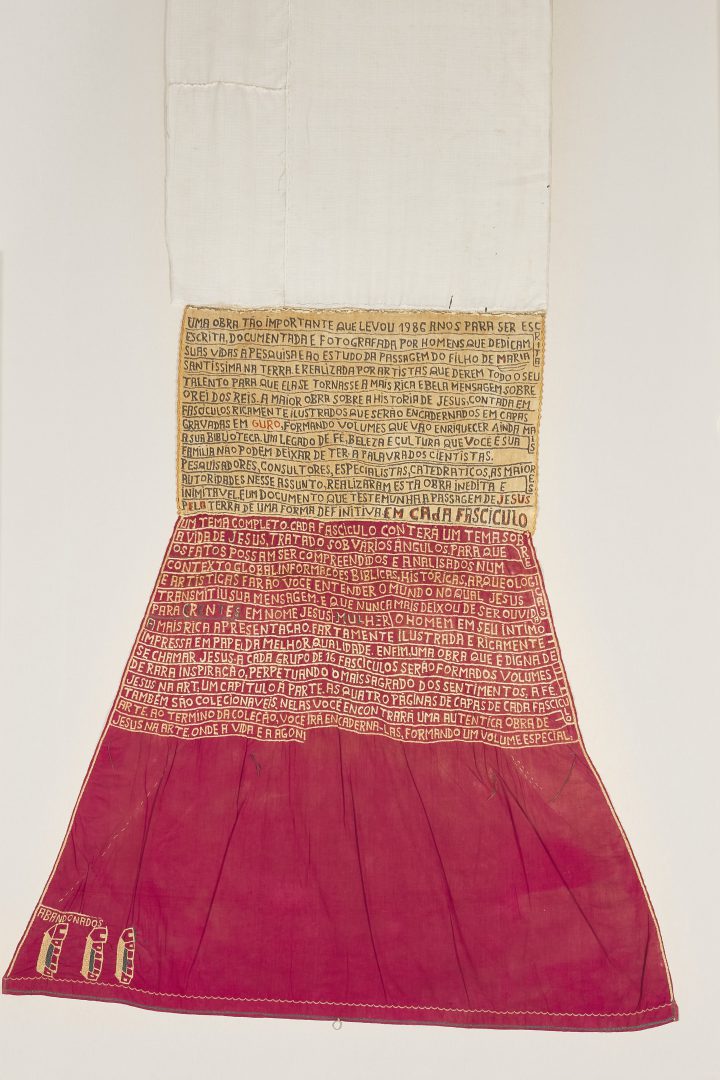 UMA OBRA TÃO IMPORTANTE QUE LEVOU 1986 ANOS PARA SER ESCRITA
ESCRITA, DOCUMENTADA E FOTOGRAFADA POR HOMENS QUE DEDICAM
SUAS VIDAS A PESQUISA E AO ESTUDO DA PASSAGEM DO FILHO DE MARIA
SANTISSIMA NA TERRA. E REALIZADA POR ARTISTAS QUE DEREM TODO O SEU
TALENTO PARA QUE ELA SE TORNASSE A MAIS RICA E BELA MENSAGEM SOBRE
O REI DOS REIS. A MAIOR OBRA SOBRE A HISTORIA DE JESUS, CONTADA EM
FASCICULOS RICAMENTE ILUSTRADOS QUE SERÃO ENCADERNADOS EM CAPAS
GRAVADAS EM OURO, FORMANDO VOLUMES QUE VÃO ENRIQUECER AINDA MAIS
A SUA BIBLIOTECA. UM LEGADO DE FÉ, BELEZA E CULTURA QUE VOCE E SUA
FAMILIA NÃO PODEM DEIXAR DE TER. A PALAVRA DOS CIENTISTAS.
PESQUISADORES, CONSULTORES, ESPECIALISTAS, CATEDRATICOS, AS MAIORES
AUTORIDADES NESSE ASSUNTO, REALIZARAM ESTA OBRA INEDITA E
INIMITAVEL, E UM DOCUMENTO QUE TESTEMUNHA A PASSAGEM DE JESUS
PELA TERRA DE UMA FORMA DEFINITIVA EM CADA FASCICULO
UM TEMA COMPLETO. CADA FASCICULO CONTERA UM TEMA SOBRE
A VIDA DE JESUS, TRATADO SOB VARIOS ÂNGULOS, PARA QUE
OS FATOS POSSAM SER COMPREENDIDOS E ANALISADOS NUM
CONTEXTO GLOBAL INFORMAÇÕES BIBLICAS, HISTORICAS, ARQUEOLOGICAS
E ARTISTICAS FARÃO VOCE ENTENDER O MUNDO NO QUAL JESUS
TRANSMITIU SUA MENSAGEM. E QUE NUNCA MAIS DEIXOU DE SER OUVIDA
PARA CRENTES EM NOME JESUS MULHER O HOMEM EM SEU INTIMO
A MAIS RICA APRESENTAÇÃO. FARTAMENTE ILUSTRADA E RICAMENTE
IMPRESSA EM PAPEL DA MELHOR QUALIDADE. ENFIM, UMA OBRA QUE É DIGNA DE
SE CHAMAR. JESUS. A CADA GRUPO DE 16 FASCICULOS SERÃO FORMADOS VOLUMES
DE RARA INSPIRAÇÃO, PERPETUANDO O MAIS SAGRADO DOS SENTIMENTOS, A FÉ
JESUS NA ART, UM CAPITULO À PARTE. AS QUATRO PÁGINAS DE CAPAS DE CADA FASCICULO
TAMBÉM SÃO COLECIONAVEIS. NELAS VOCE ENCONTRARA UMA AUTENTICA OBRA DE
ARTE AO TERMINO DA COLEÇÃO, VOCE IRÁ ENCADERNA-LAS, FORMANDO UM VOLUME ESPECIAL.
JESUS NA ARTE. ONDE A VIDA E A AGONI
ABANDONADOS